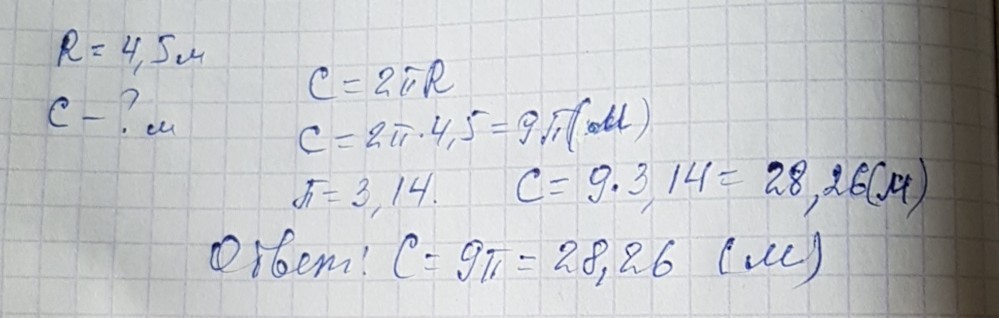 R = 4,5м
C - ? м
C = 2πR
C = 2π·4,5 = 9π(м)
π = 3,14. C = 9·3,14 = 28,26(м)
Ответ: C = 9π = 28,26 (м)